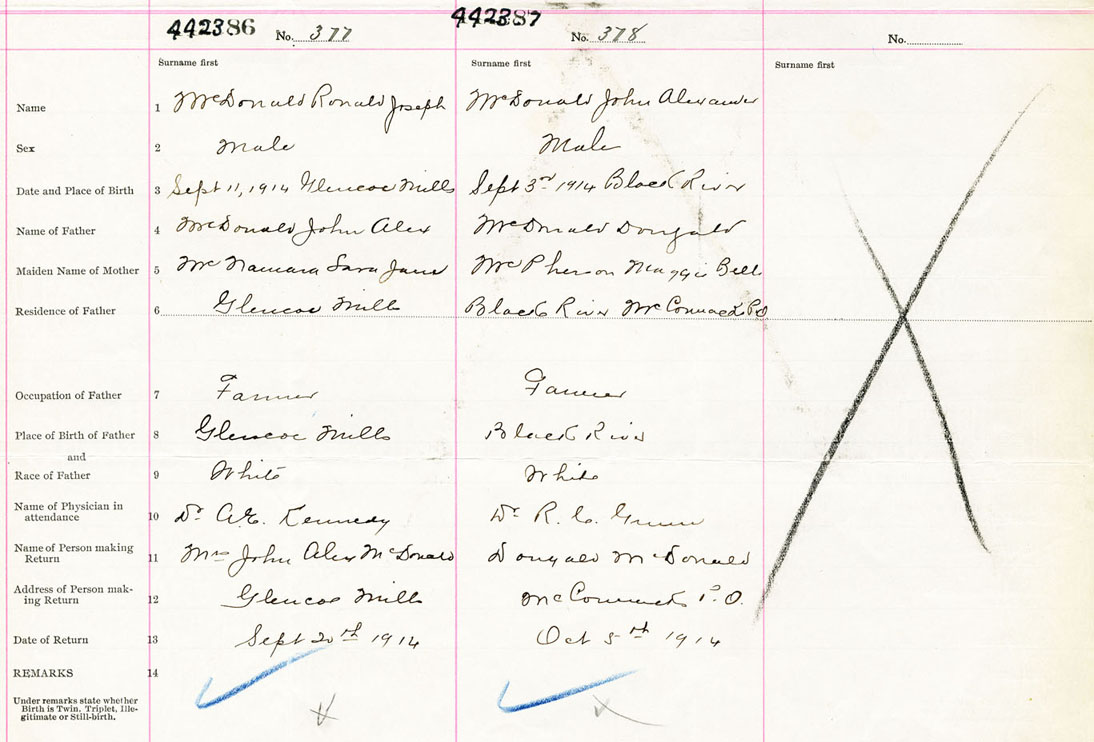 442386 No. 377 442387 No. 378 No.
Surname first Surname first Surname first
Name 1 McDonald Ronald Joseph McDonald John Alexander
Sex 2 Male Male
Date and Place of Birth 3 Sept 11, 1914 Glencoe Mills Sept 3rd 1914 Black River
Name of Father 4 McDonald John Alex McDonald Dougald
Maiden Name of Mother 5 McNamara Sara Jane McPherson Maggie Bell
Residence of Father 6 Glencoe Mills Black River McCormack P.O
Occupation of Father 7 Farmer Farmer
Place of Birth of Father 8 Glencoe Mills Black River
and
Race of Father 9 White White
Name of Physician in
attendance 10 Dr A.E. Kennedy Dr R. C.
Name of Person making
Return 11 Mrs John Alex McDonald Dougald McDonald
Address of Person mak-
ing Return 12 Glencoe Mills McCormack P.O.
Date of Return 13 Sept 20th 1914 Oct 5th 1914
REMARKS 14
Under remarks state whether
Birth is Twin, Triplet, Ille-
gitimate or Still-birth.